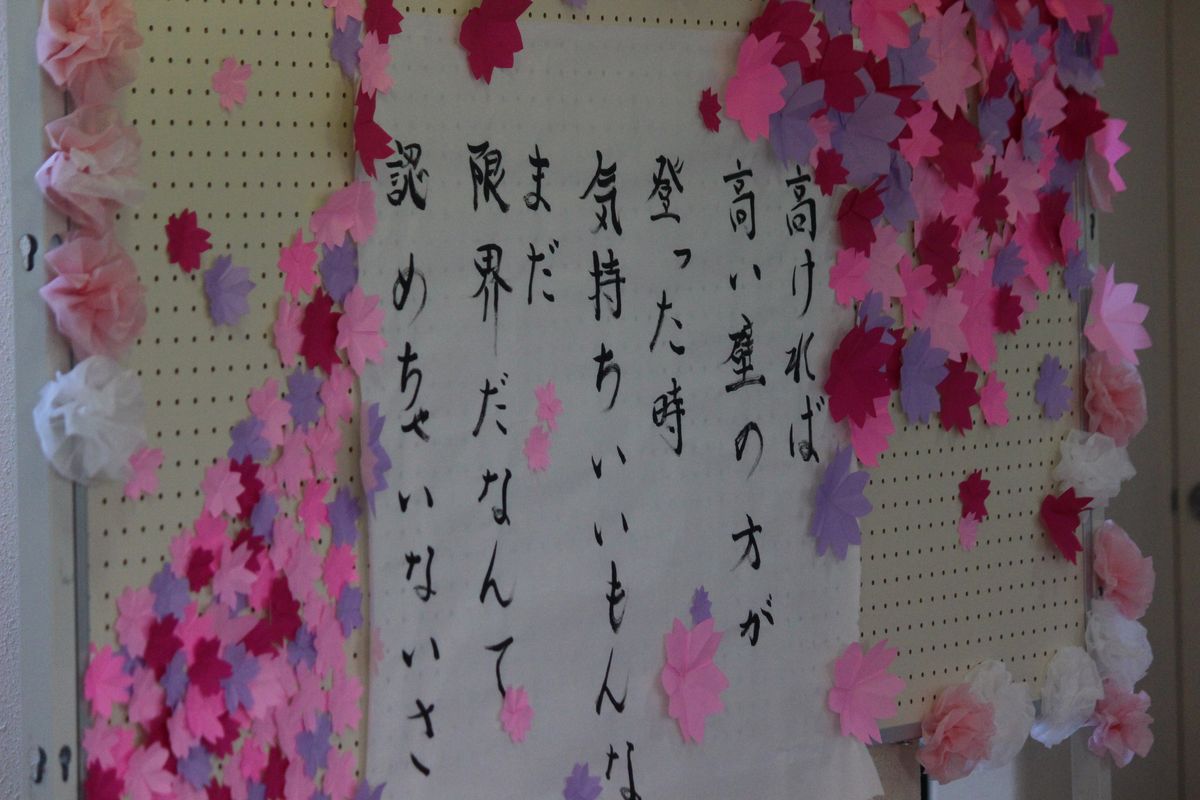 高ければ
高い壁の方が
登った時
気持ちいいもんな
まだ
限界だなんて
認めちゃいないさ